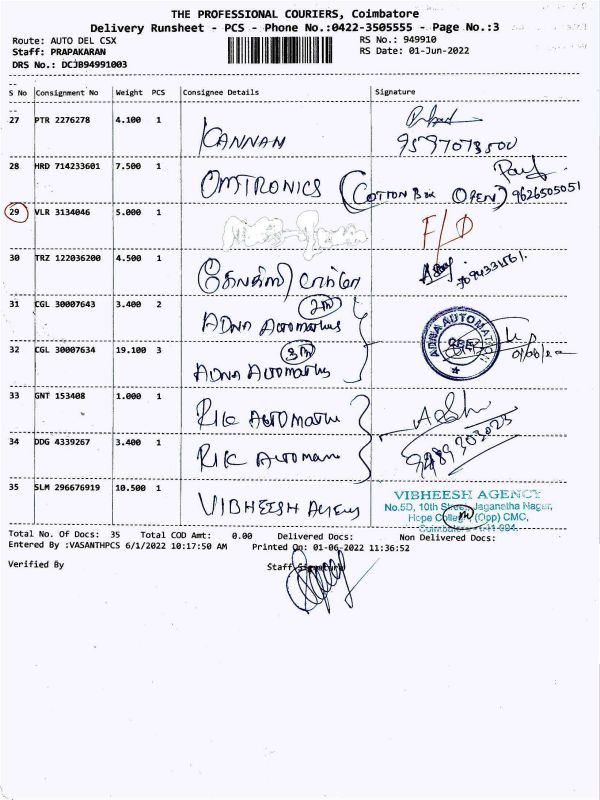 THE PROFESSIONAL COURIERS, Coimbatore
Delivery Runsheet - PCS - Phone No.:0422-3505555 - Page No.:3
Route: AUTO DEL CSX
RS No.: 949910
Staff: PRAPAKARAN
RS Date: 01-Jun-2022
DRS No.: DCJB94991003
S No Consignment No Weight PCS Consignee Details Signature
27 PTR 2276278 4.100 1 KANNAN
28 HRD 714233601 7.500 1 OMTRONICS (COTTON Box OPEN) 9626505051
29 VLR 3134046 5.000 1 F/D
30 TRZ 122036200 4.500 1
31 CGL 30007643 3.400 2 ADNA Automations
32 CGL 30007634 19.100 3 ADNA Automations
ADNA AUTOMATION
CBE
33 GNT 153408 1.000 1
34 DDG 4339267 3.400 1
35 SLM 296676919 10.500 1 VIBHEESH Agency
VIBHEESH AGENCY
No.5D, 10th Street, Jaganatha Nagar,
Hope College (Opp) CMC,
Total No. Of Docs: 35 Total COD Amt: 0.00 Delivered Docs: Non Delivered Docs:
Entered By :VASANTHPCS 6/1/2022 10:17:50 AM Printed On: 01-06-2022 11:36:52
Verified By
Staff Signature